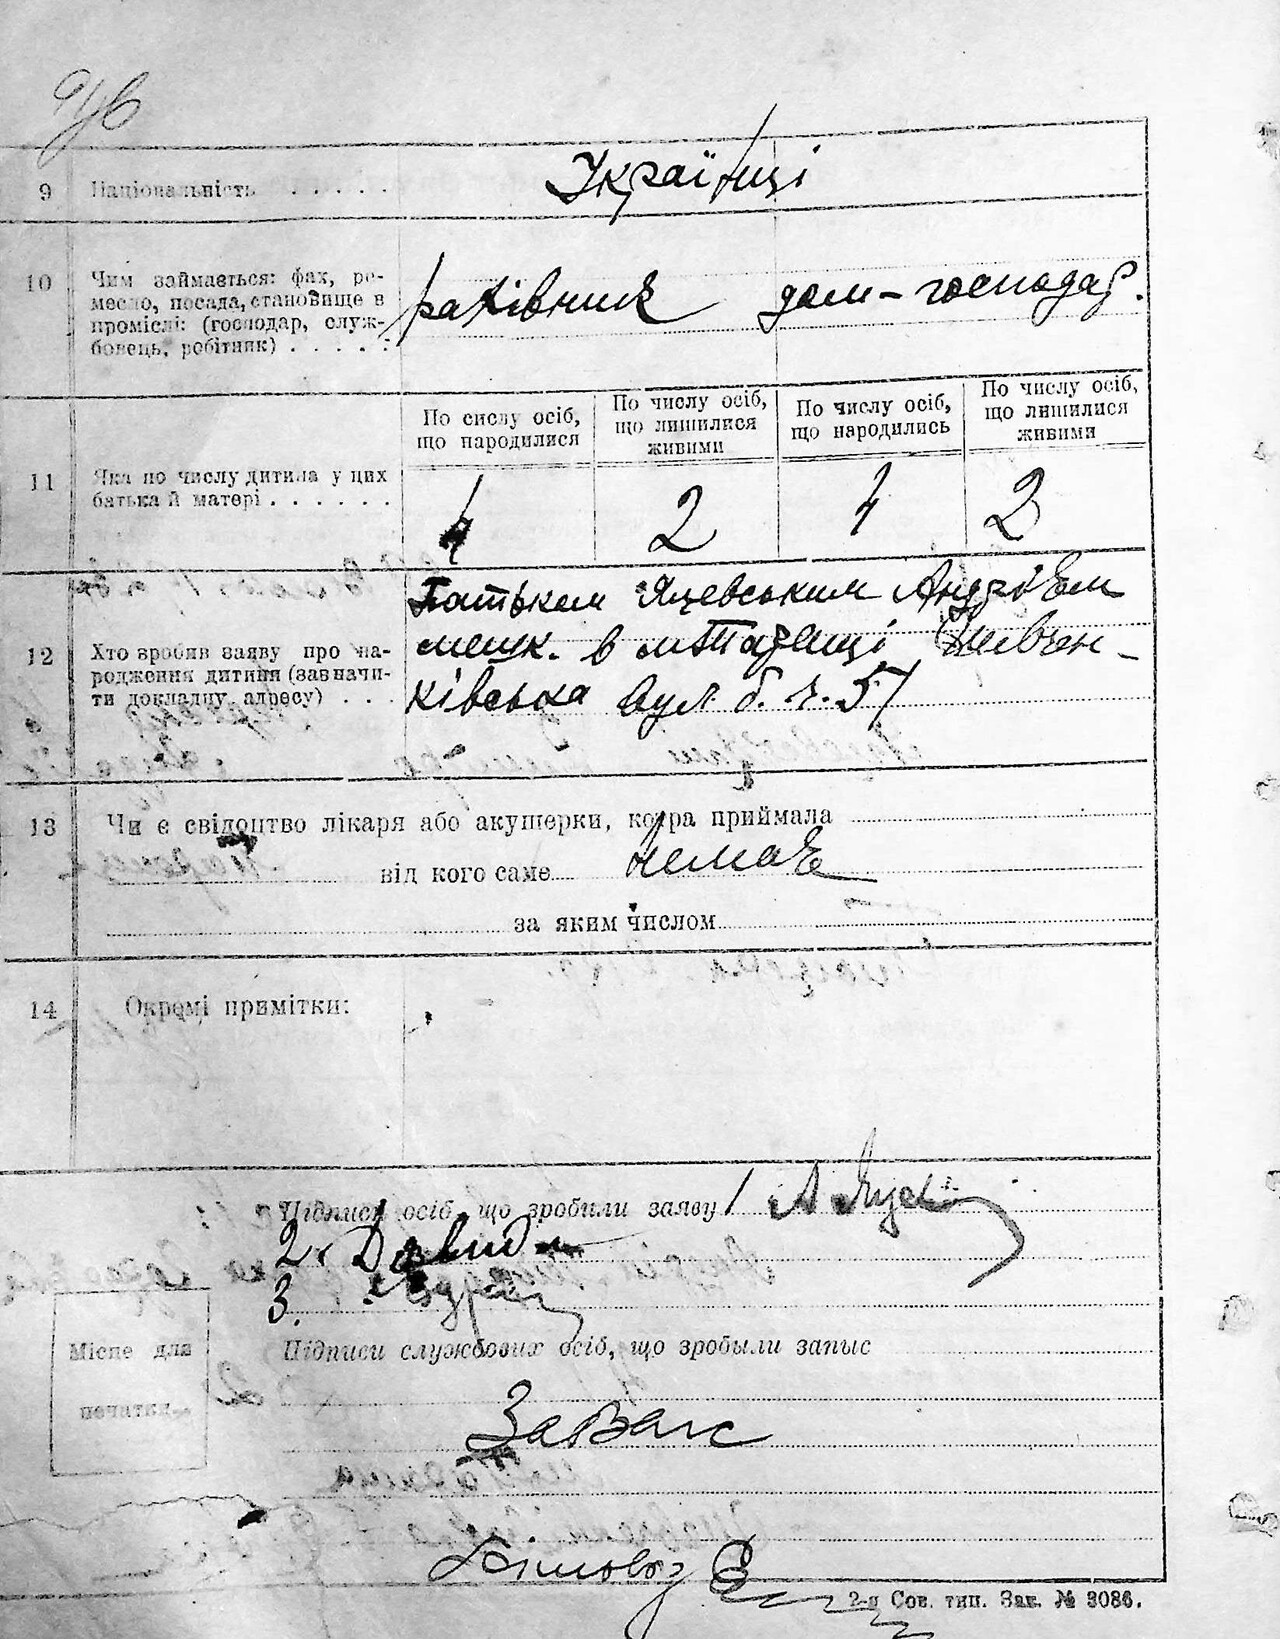 9 Національність . . . . . Українці
10 Чим займається: фах, ре-
месло, посада, становище в
промислі: (господар, служ-
бовець, робітник) . . . . :
рахівник дом-господар.
11 Яка по числу дитина у цих
батька й матері . . . . . .
По сислу осіб,
що народилися
По числу осіб,
що лишилися
живими
По числу осіб,
що народились
По числу осіб,
що лишилися
живими
4 2 4 2
12 Хто зробив заяву про на-
родження дитини (зазначи-
ти докладну адресу) . . .
Батьком Яцевським Андрієм
мешк. в м Таращі Шевчен-
ківська вул б. ч. 57
13 Чи є свідоцтво лікаря або акушерки, котра приймала
від кого саме немає
за яким числом
14 Окремі примітки:
Підписи осіб, що зробили заяву 1 А Яцев
2.
3.
Підписи службових осіб, що зробили запис
Місце для
печатки
ЗаВагс
2-я Сов. тип. Зак. № 3086.